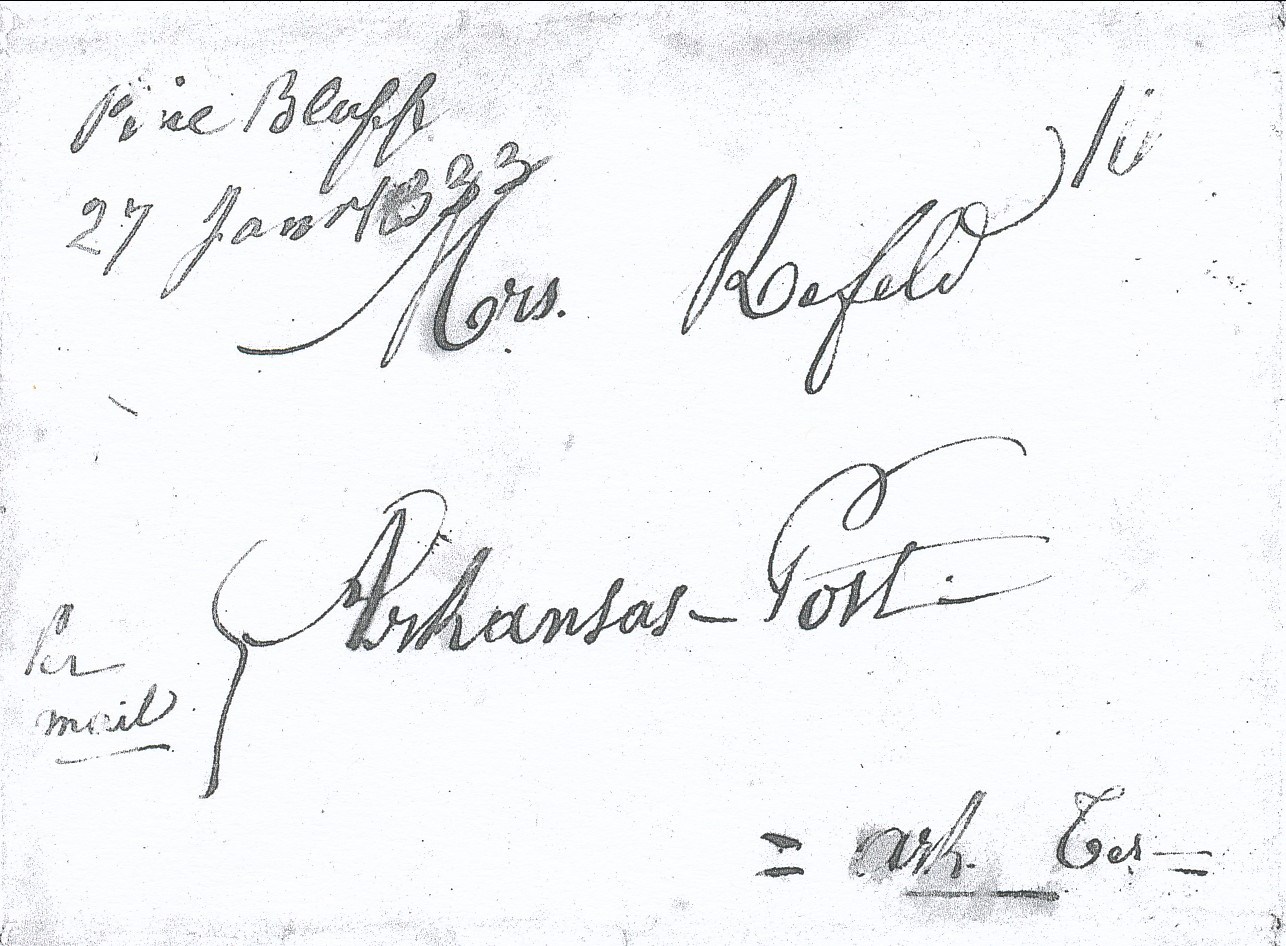 Pine Bluff
27 Janr 1833
10
Mrs. Refeld
Arkansas - Post -
Per
mail
= Ark. Ter =